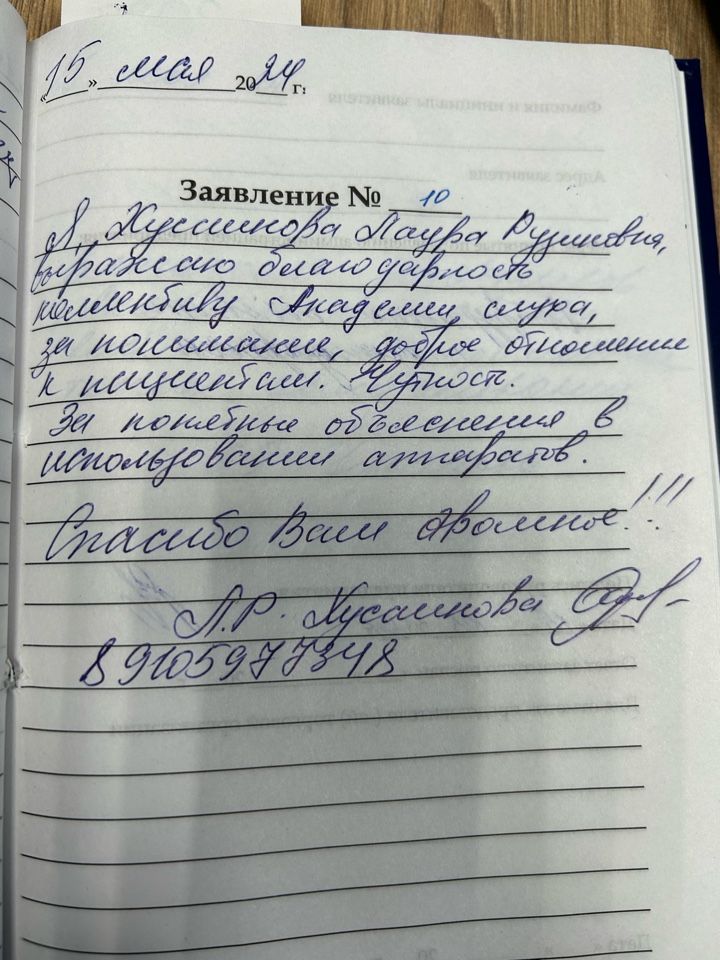 «15» мая 2024 г.
Заявление № 10
Я, Хуссаинова Лаура Рузиковна,
выражаю благодарность
коллективу Академии слуха,
за понимание, доброе отношение
к пациентам. Чуткость.
За понятные объяснения в
использовании аппаратов.
Спасибо Вам огромное!!!
Л.Р. Хусаинова
89105977348